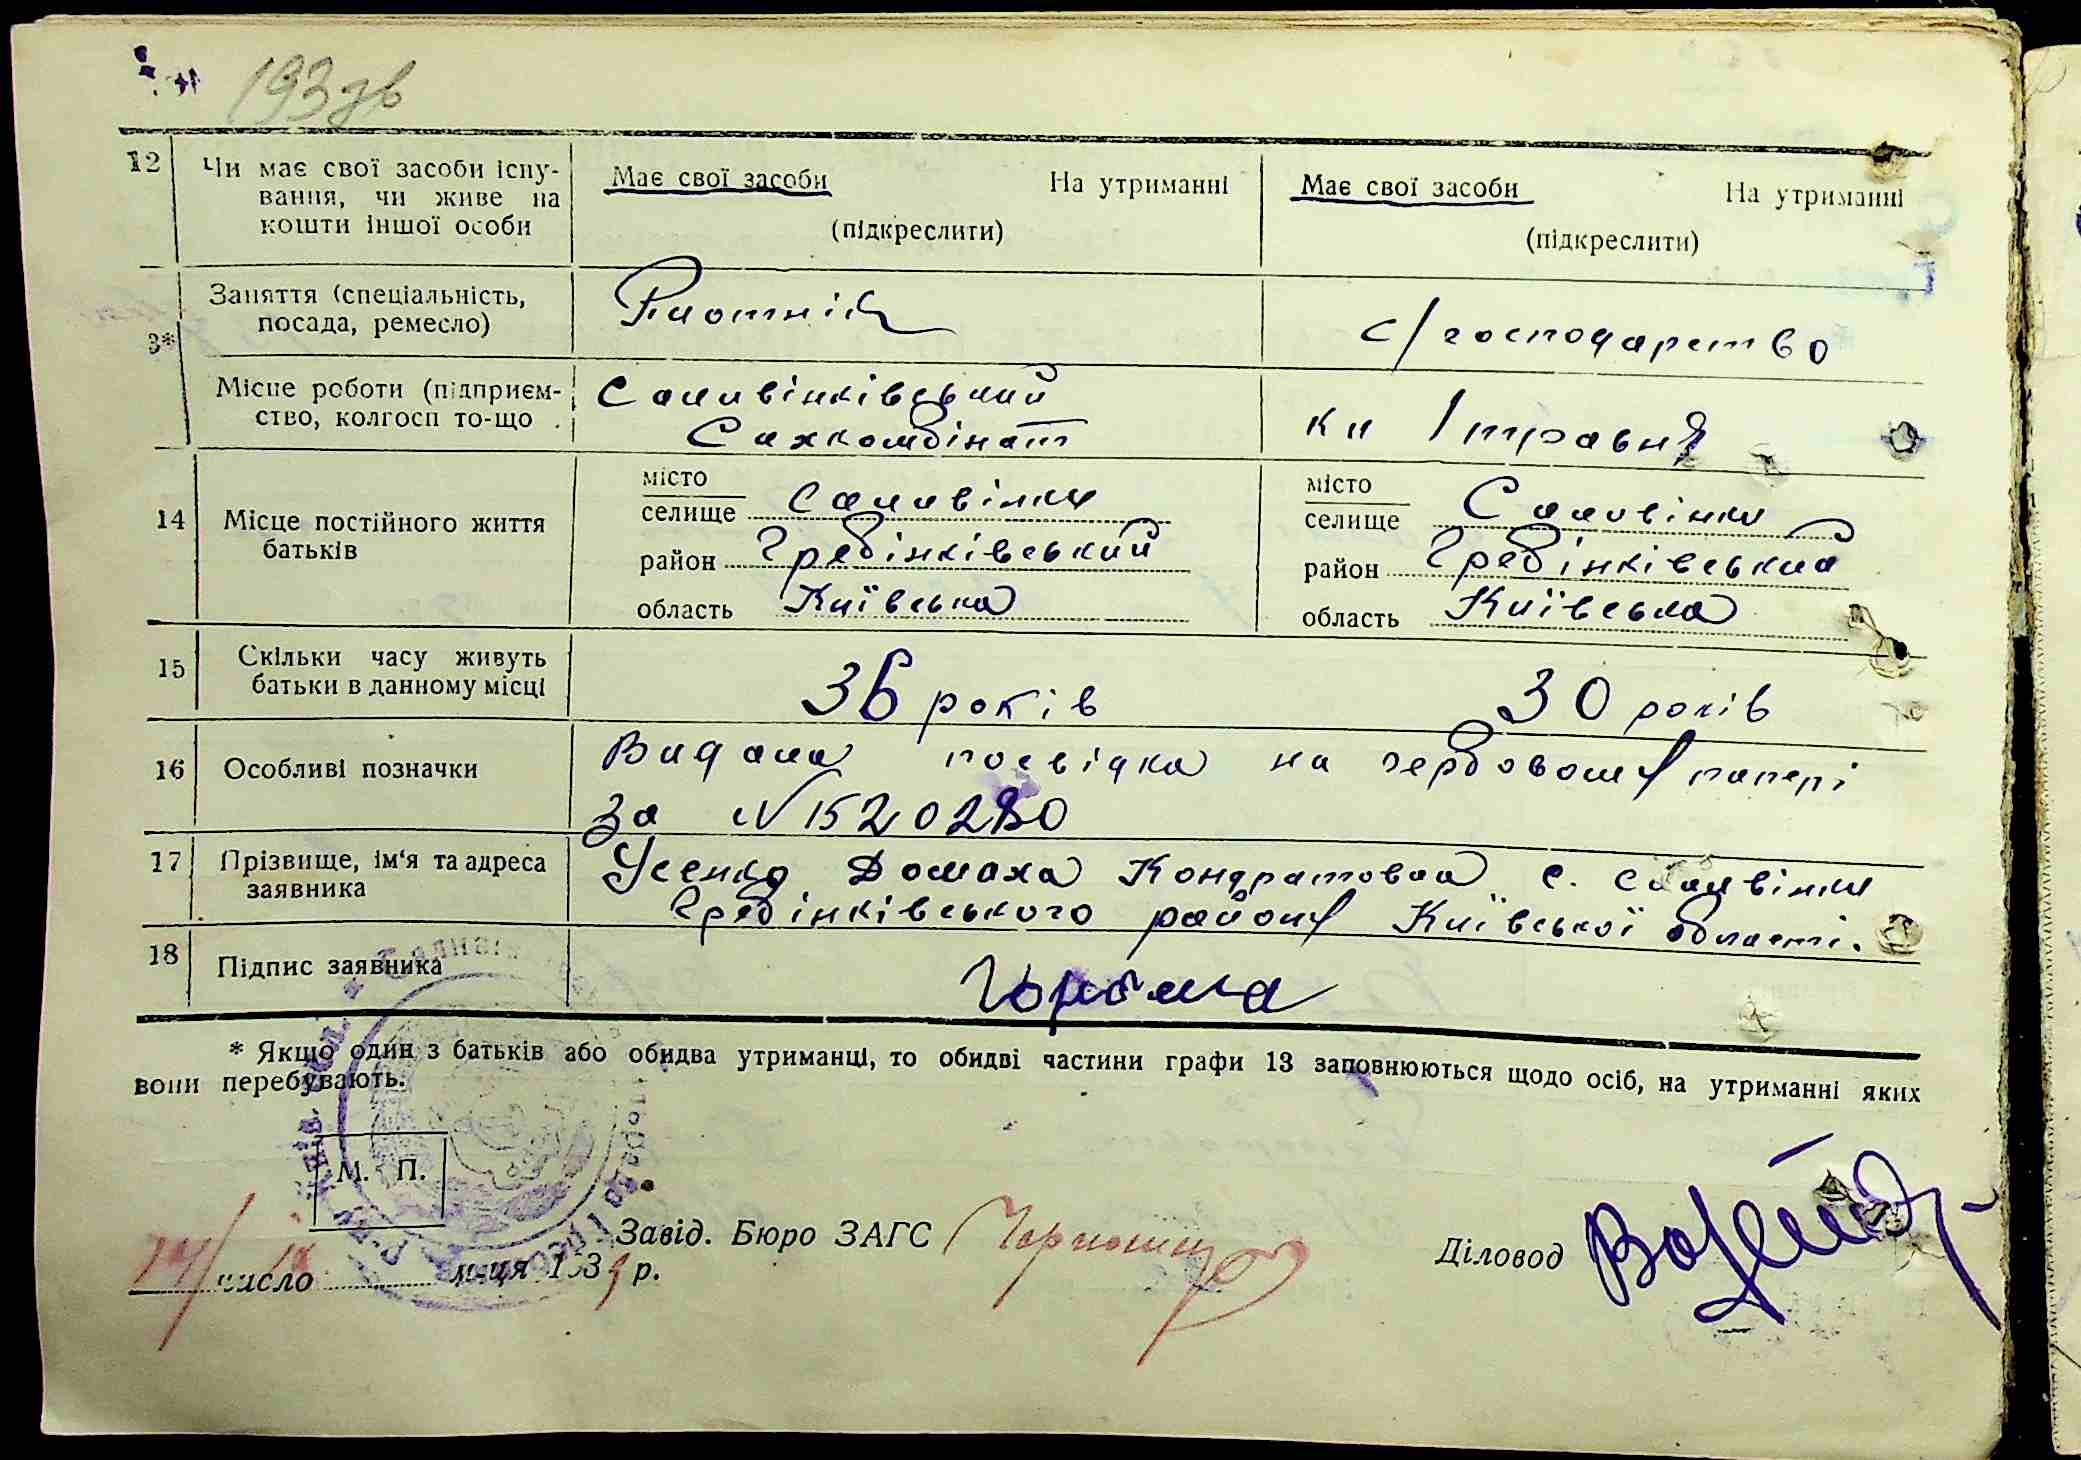 193зв
12 Чи має свої засоби існу-
вання, чи живе на
кошти іншої особи
Має свої засоби На утриманні
(підкреслити)
Має свої засоби На утриманні
(підкреслити)
3*
Заняття (спеціальність,
посада, ремесло)
Плотнік
с/господарство
Місце роботи (підприєм-
ство, колгосп то-що
Саливінківський
Сахкомбінат
кп 1 травня
14 Місце постійного життя
батьків
місто
селище Саливінки
район Гребінківський
область Київська
місто
селище Саливінки
район Гребінківський
область Київська
15 Скільки часу живуть
батьки в данному місці
36 років
30 років
16 Особливі позначки
Видана посвідка на гербовому папері
за № 1520280
17 Прізвище, ім'я та адреса
заявника
Усенко Домаха Кондратовна с. Саливінки
Гребінківського району Київської області.
18 Підпис заявника
* Якщо один з батьків або обидва утриманці, то обидві частини графи 13 заповнюються щодо осіб, на утриманні яких
вони перебувають.
М. П.
Завід. Бюро ЗАГС
Діловод
число м-ця 1939 р.